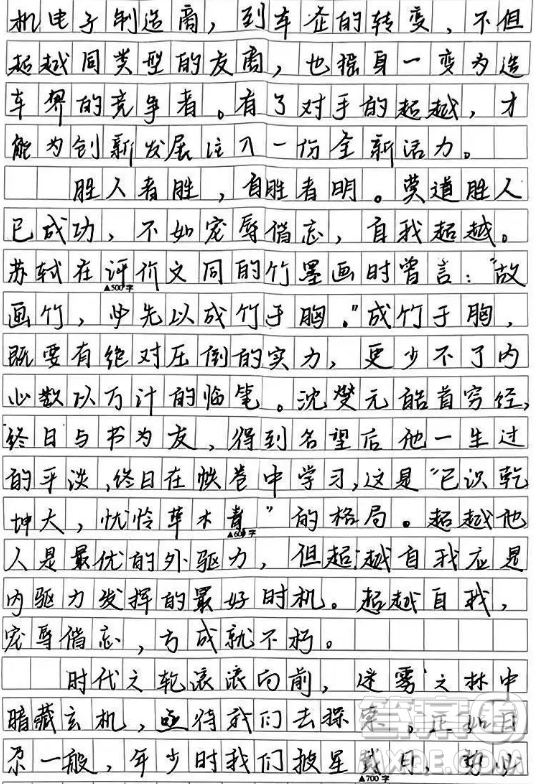 机电子制造商，到车企的转变，不但
超越同类型的友商，也摇身一变为造
车界的竞争者。有了对手的超越，才
能为创新发展注入一份全新活力。
胜人者胜，自胜者明。莫道胜人
已成功，不如宠辱偕忘，自我超越。
苏轼在评价文同的竹墨画时曾言："故
▲500字
画竹，必先以成竹于胸。"成竹于胸，
既要有绝对压倒的实力，更少不了内
心数以万计的临笔。沈燮元皓首穷经，
终日与书为友，得到名望后他一生过
的平淡，终日在帙卷中学习，这是"已识乾
坤大，忧怜草木青"的格局。超越他
▲600字
人是最优的外驱力，但超越自我应是
内驱力发挥的最好时机。超越自我，
宠辱偕忘，方成就不朽。
时代之轮滚滚向前，迷雾之林中
暗藏玄机，亟待我们去探索。正如日
尕一般，年少时我们披星戴月，努
▲700字